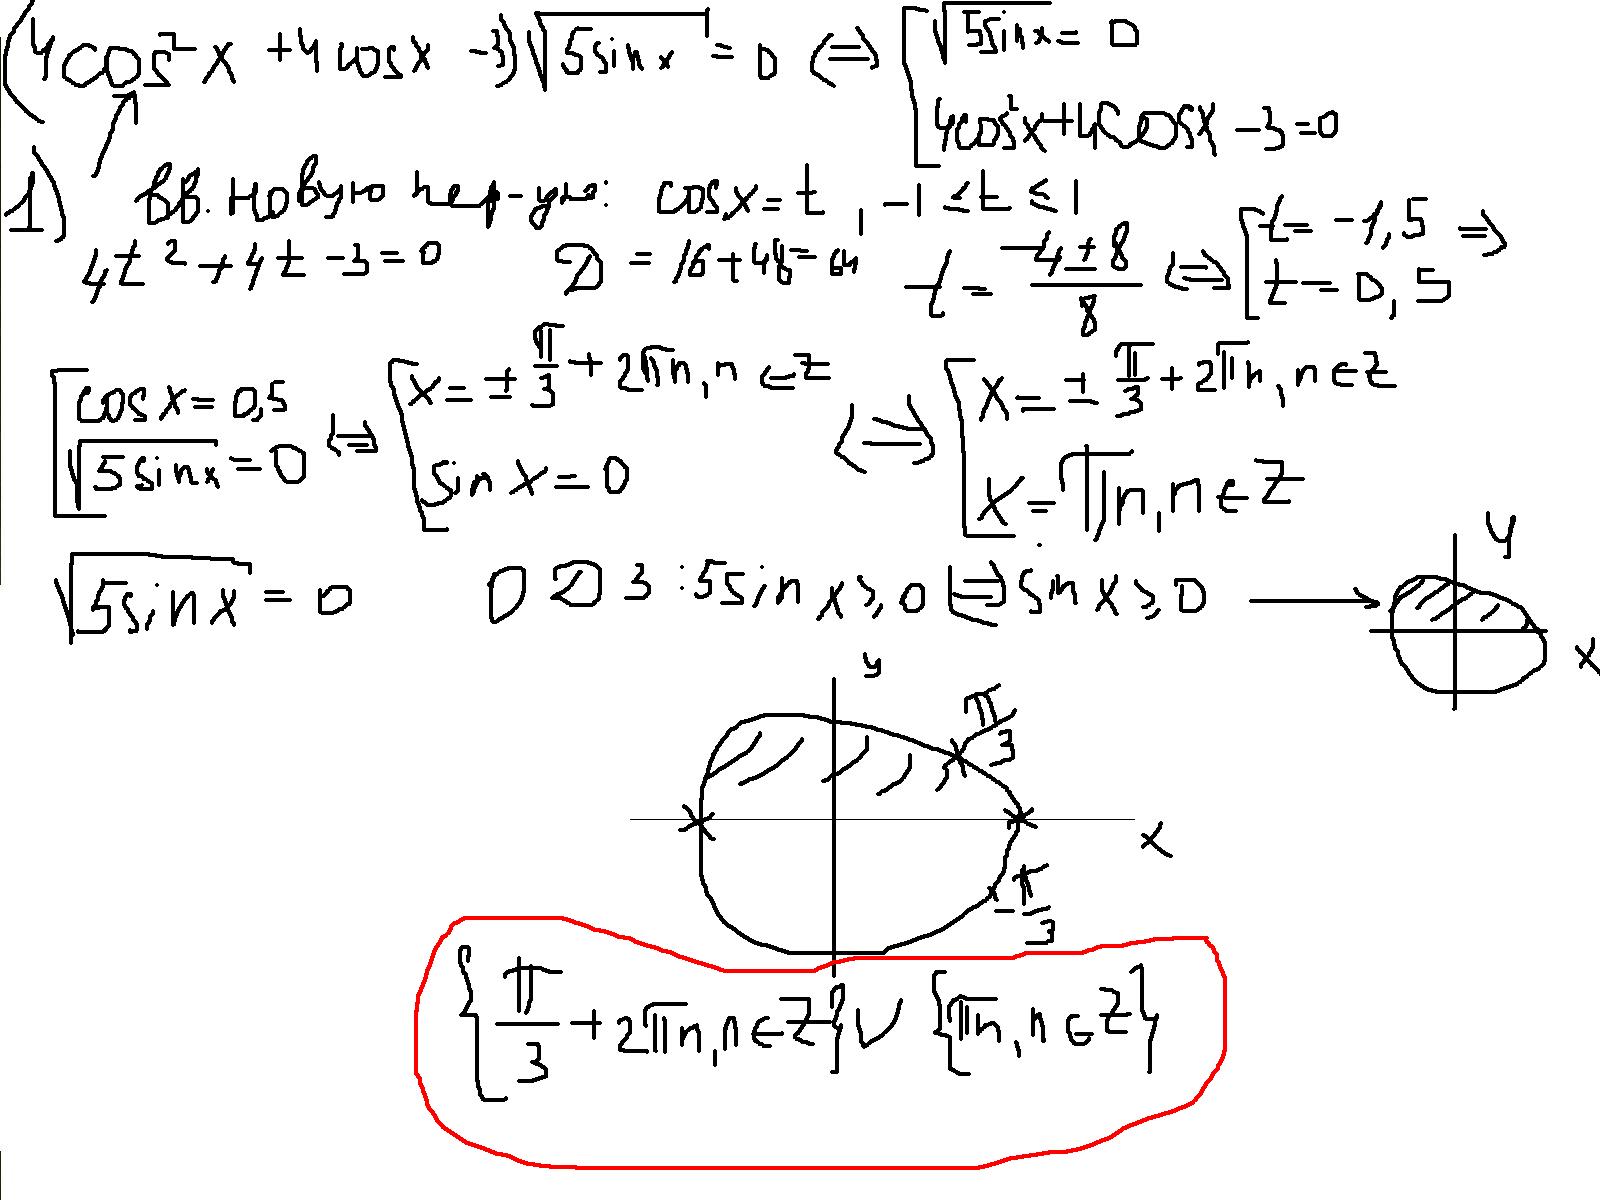 (4cos²x + 4cosx - 3)√5sinx = 0 ⇔ [ √5sinx = 0
4cos²x + 4cosx - 3 = 0
1) вв. новую пер-ую: cosx = t, -1 ≤ t ≤ 1
4t² + 4t - 3 = 0 D = 16 + 48 = 64 t = (-4 ± 8)/8 ⇔ [ t = -1,5 ⇒
t = 0,5
[ cosx = 0,5 ⇔ [ x = ± π/3 + 2πn, n ∈ Z ⇔ [ x = ± π/3 + 2πn, n ∈ Z
√5sinx = 0 sinx = 0 x = πn, n ∈ Z
√5sinx = 0 ОДЗ: 5sinx ≥ 0 ⇔ sinx ≥ 0 →
y
x
y
π/3
x
-π/3
{π/3 + 2πn, n ∈ Z} ∪ {πn, n ∈ Z}